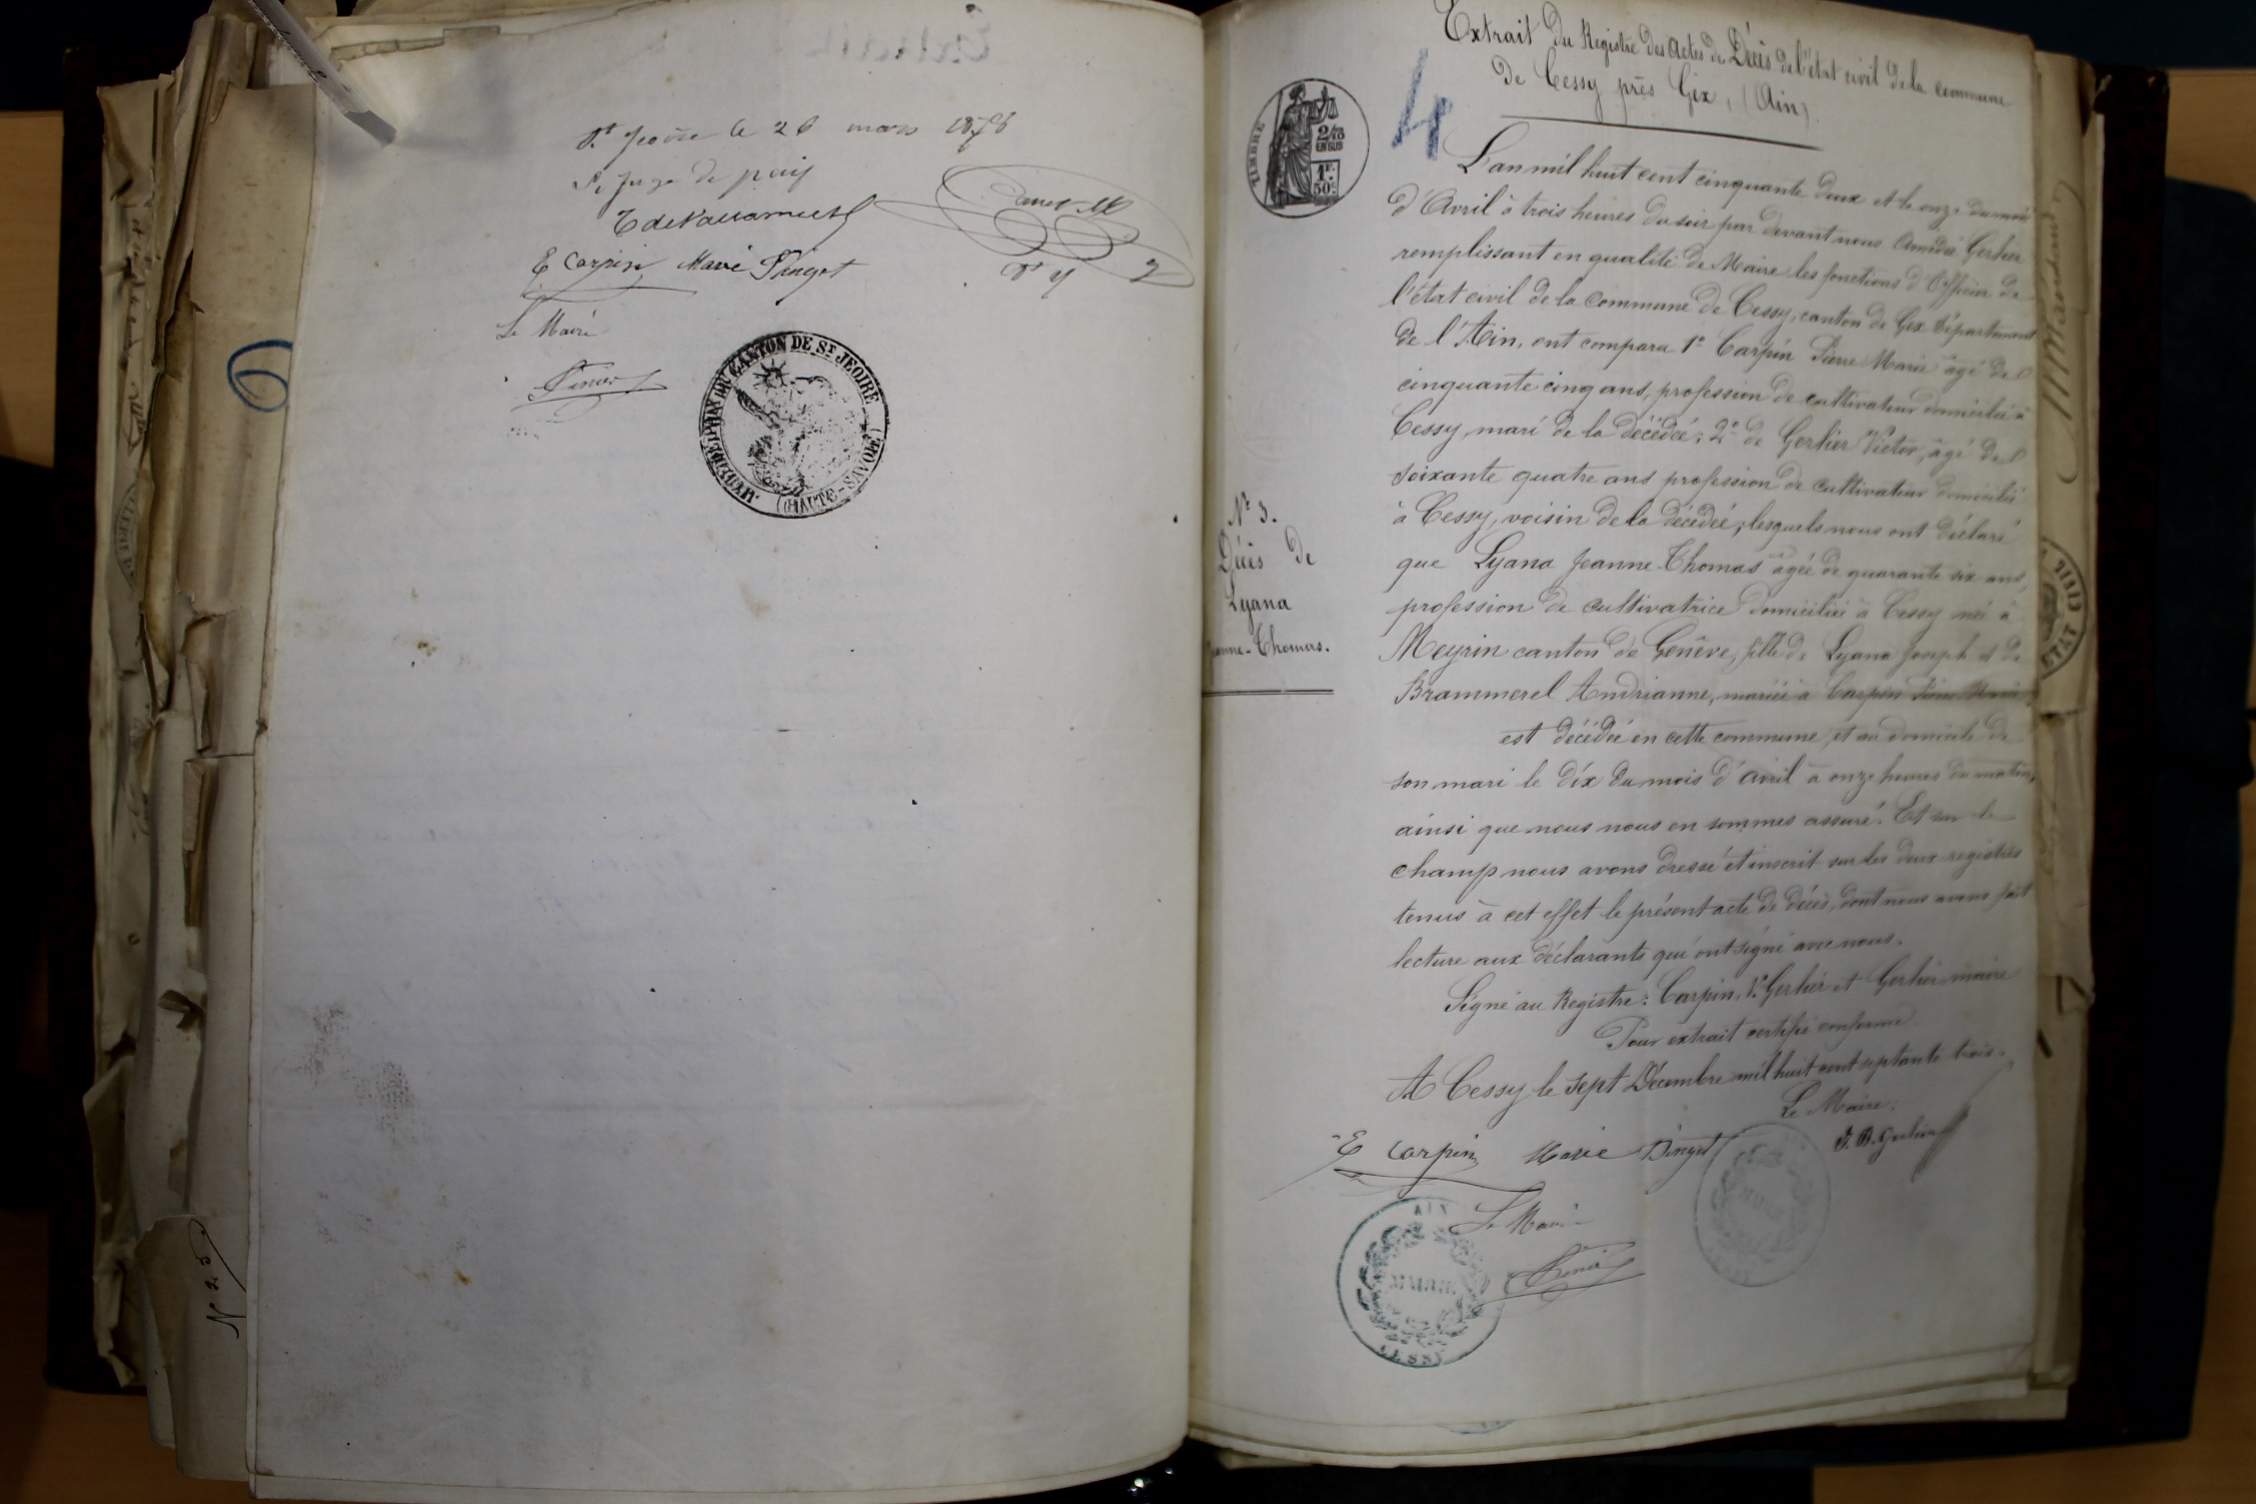 St Jeoire le 26 mars 1876
Le Juge de paix
E Carpin Marie Pinget
Le Maire
CANTON DE ST JEOIRE
(HAUTE-SAVOIE)
N 23
TIMBRE
2/10 EN SUS
1F. 50C.
4
Extrait du Registre des Actes de Décès de l'état civil de la commune
de Cessy près Gex, (Ain)
L'an mil huit cent cinquante deux et le onze du mois
d'Avril à trois heures du soir par devant nous Amédée Gerlier
remplissant en qualité de Maire les fonctions d'Officier de
l'état civil de la Commune de Cessy, canton de Gex Département
de l'Ain, ont comparu 1° Carpin Pierre Marie âgé de
cinquante cinq ans, profession de cultivateur domicilié à
Cessy, mari de la décédée; 2° de Gerlier Victor, âgé de
soixante quatre ans profession de cultivateur domicilié
à Cessy, voisin de la décédée; lesquels nous ont déclaré
que Lyana Jeanne-Thomas âgée de quarante six ans
profession de cultivatrice domiciliée à Cessy née à
Meyrin canton de Genêve, fille de Lyana Joseph et de
Brammerel Andrianne, mariée à Carpin Pierre Marie
est décédée en cette commune, et au domicile de
son mari le dix du mois d'avril à onze heures du matin,
ainsi que nous nous en sommes assuré. Et sur le
champ nous avons dressé et inscrit sur les deux registres
tenus à cet effet le présent acte de décès, dont nous avons fait
lecture aux déclarants qui ont signé avec nous.
Signé au Registre: Carpin, V. Gerlier et Gerlier maire
Pour extrait certifié conforme
A Cessy le sept Décembre mil huit cent septante trois.
Le Maire.
J. B. Gerlier
E Carpin Marie Pinget
Le Maire
N° 3.
Décès de
Lyana
Jeanne-Thomas.
AIN
MAIRIE
CESSY